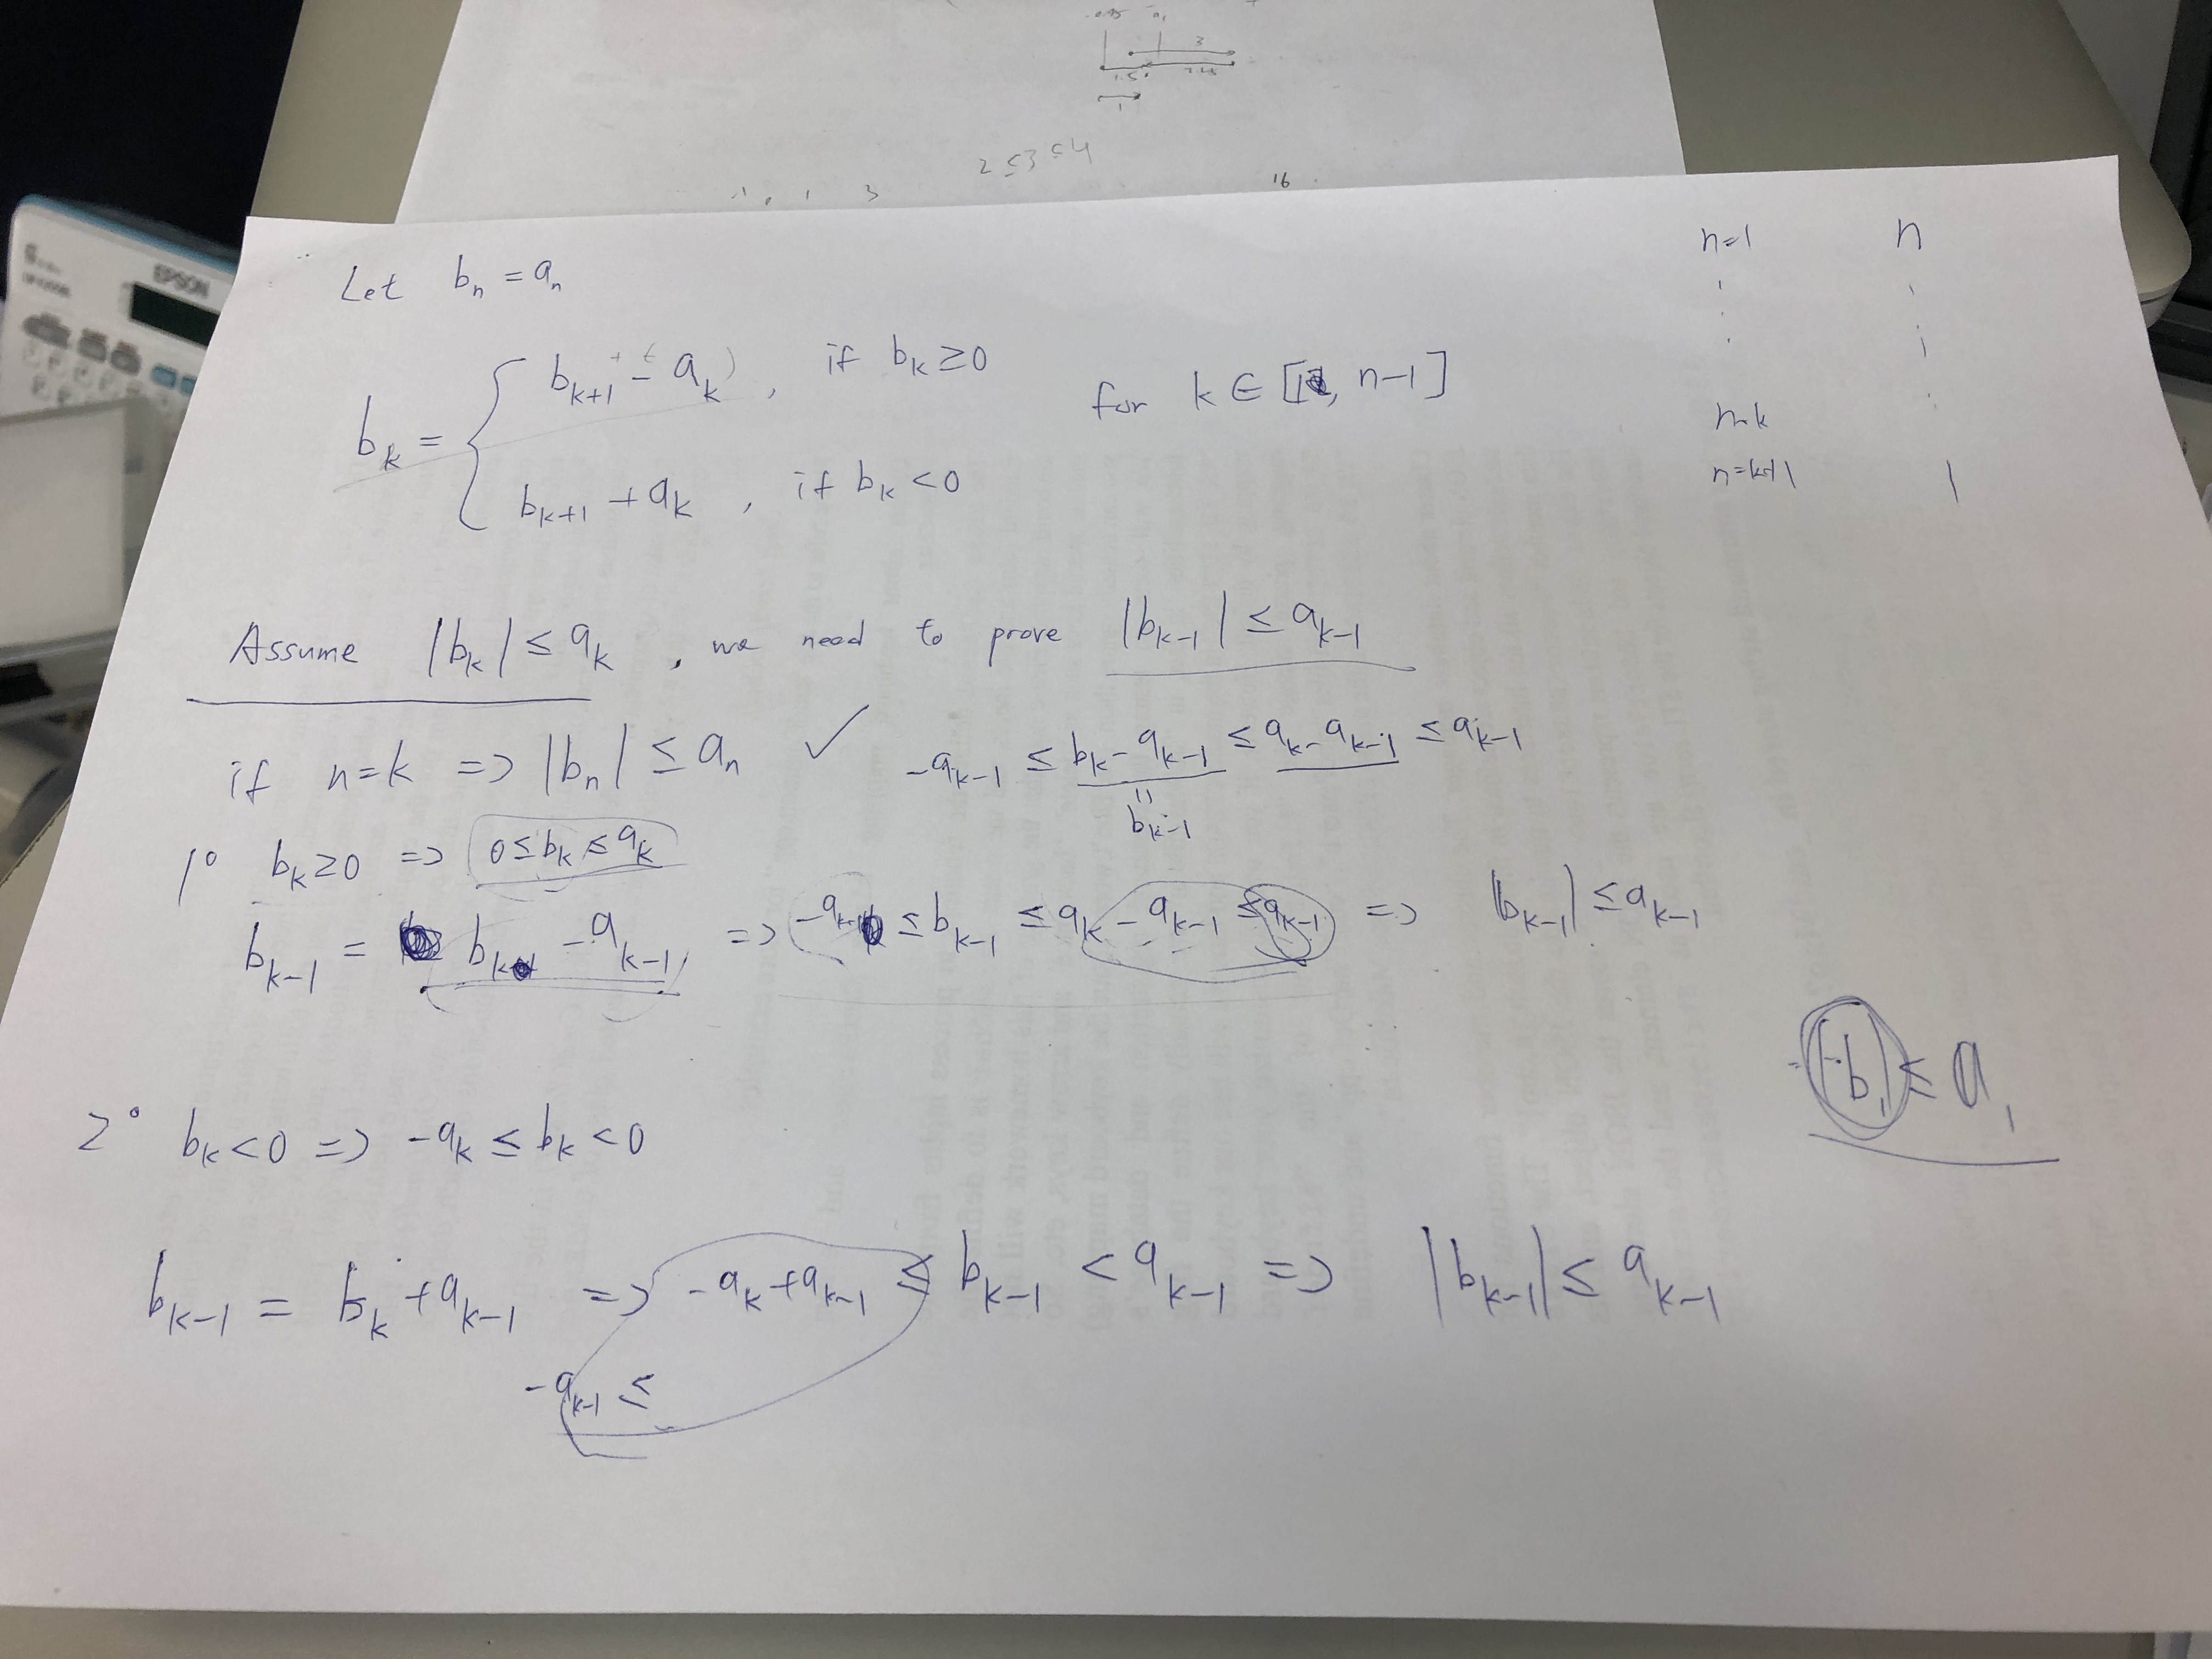 3
1
2 ≤ 3 ≤ 4
1 3
16
EPSON
Let bₙ = aₙ
n=1 n
bₖ = { bₖ₊₁ - aₖ , if bₖ ≥ 0
bₖ₊₁ + aₖ , if bₖ < 0
for k ∈ [1, n-1]
n=k+1 1
Assume |bₖ| ≤ aₖ , we need to prove |bₖ₋₁| ≤ aₖ₋₁
if n=k => |bₙ| ≤ aₙ ✓
-aₖ₋₁ ≤ bₖ - aₖ₋₁ ≤ aₖ - aₖ₋₁ ≤ aₖ₋₁
=
bₖ₋₁
1° bₖ ≥ 0 => 0 ≤ bₖ ≤ aₖ
bₖ₋₁ = bₖ - aₖ₋₁ => -aₖ₋₁ ≤ bₖ₋₁ ≤ aₖ - aₖ₋₁ ≤ aₖ₋₁ => |bₖ₋₁| ≤ aₖ₋₁
|b₁| ≤ a₁
2° bₖ < 0 => -aₖ ≤ bₖ < 0
bₖ₋₁ = bₖ + aₖ₋₁ => -aₖ + aₖ₋₁ ≤ bₖ₋₁ < aₖ₋₁ => |bₖ₋₁| ≤ aₖ₋₁
-aₖ₋₁ ≤